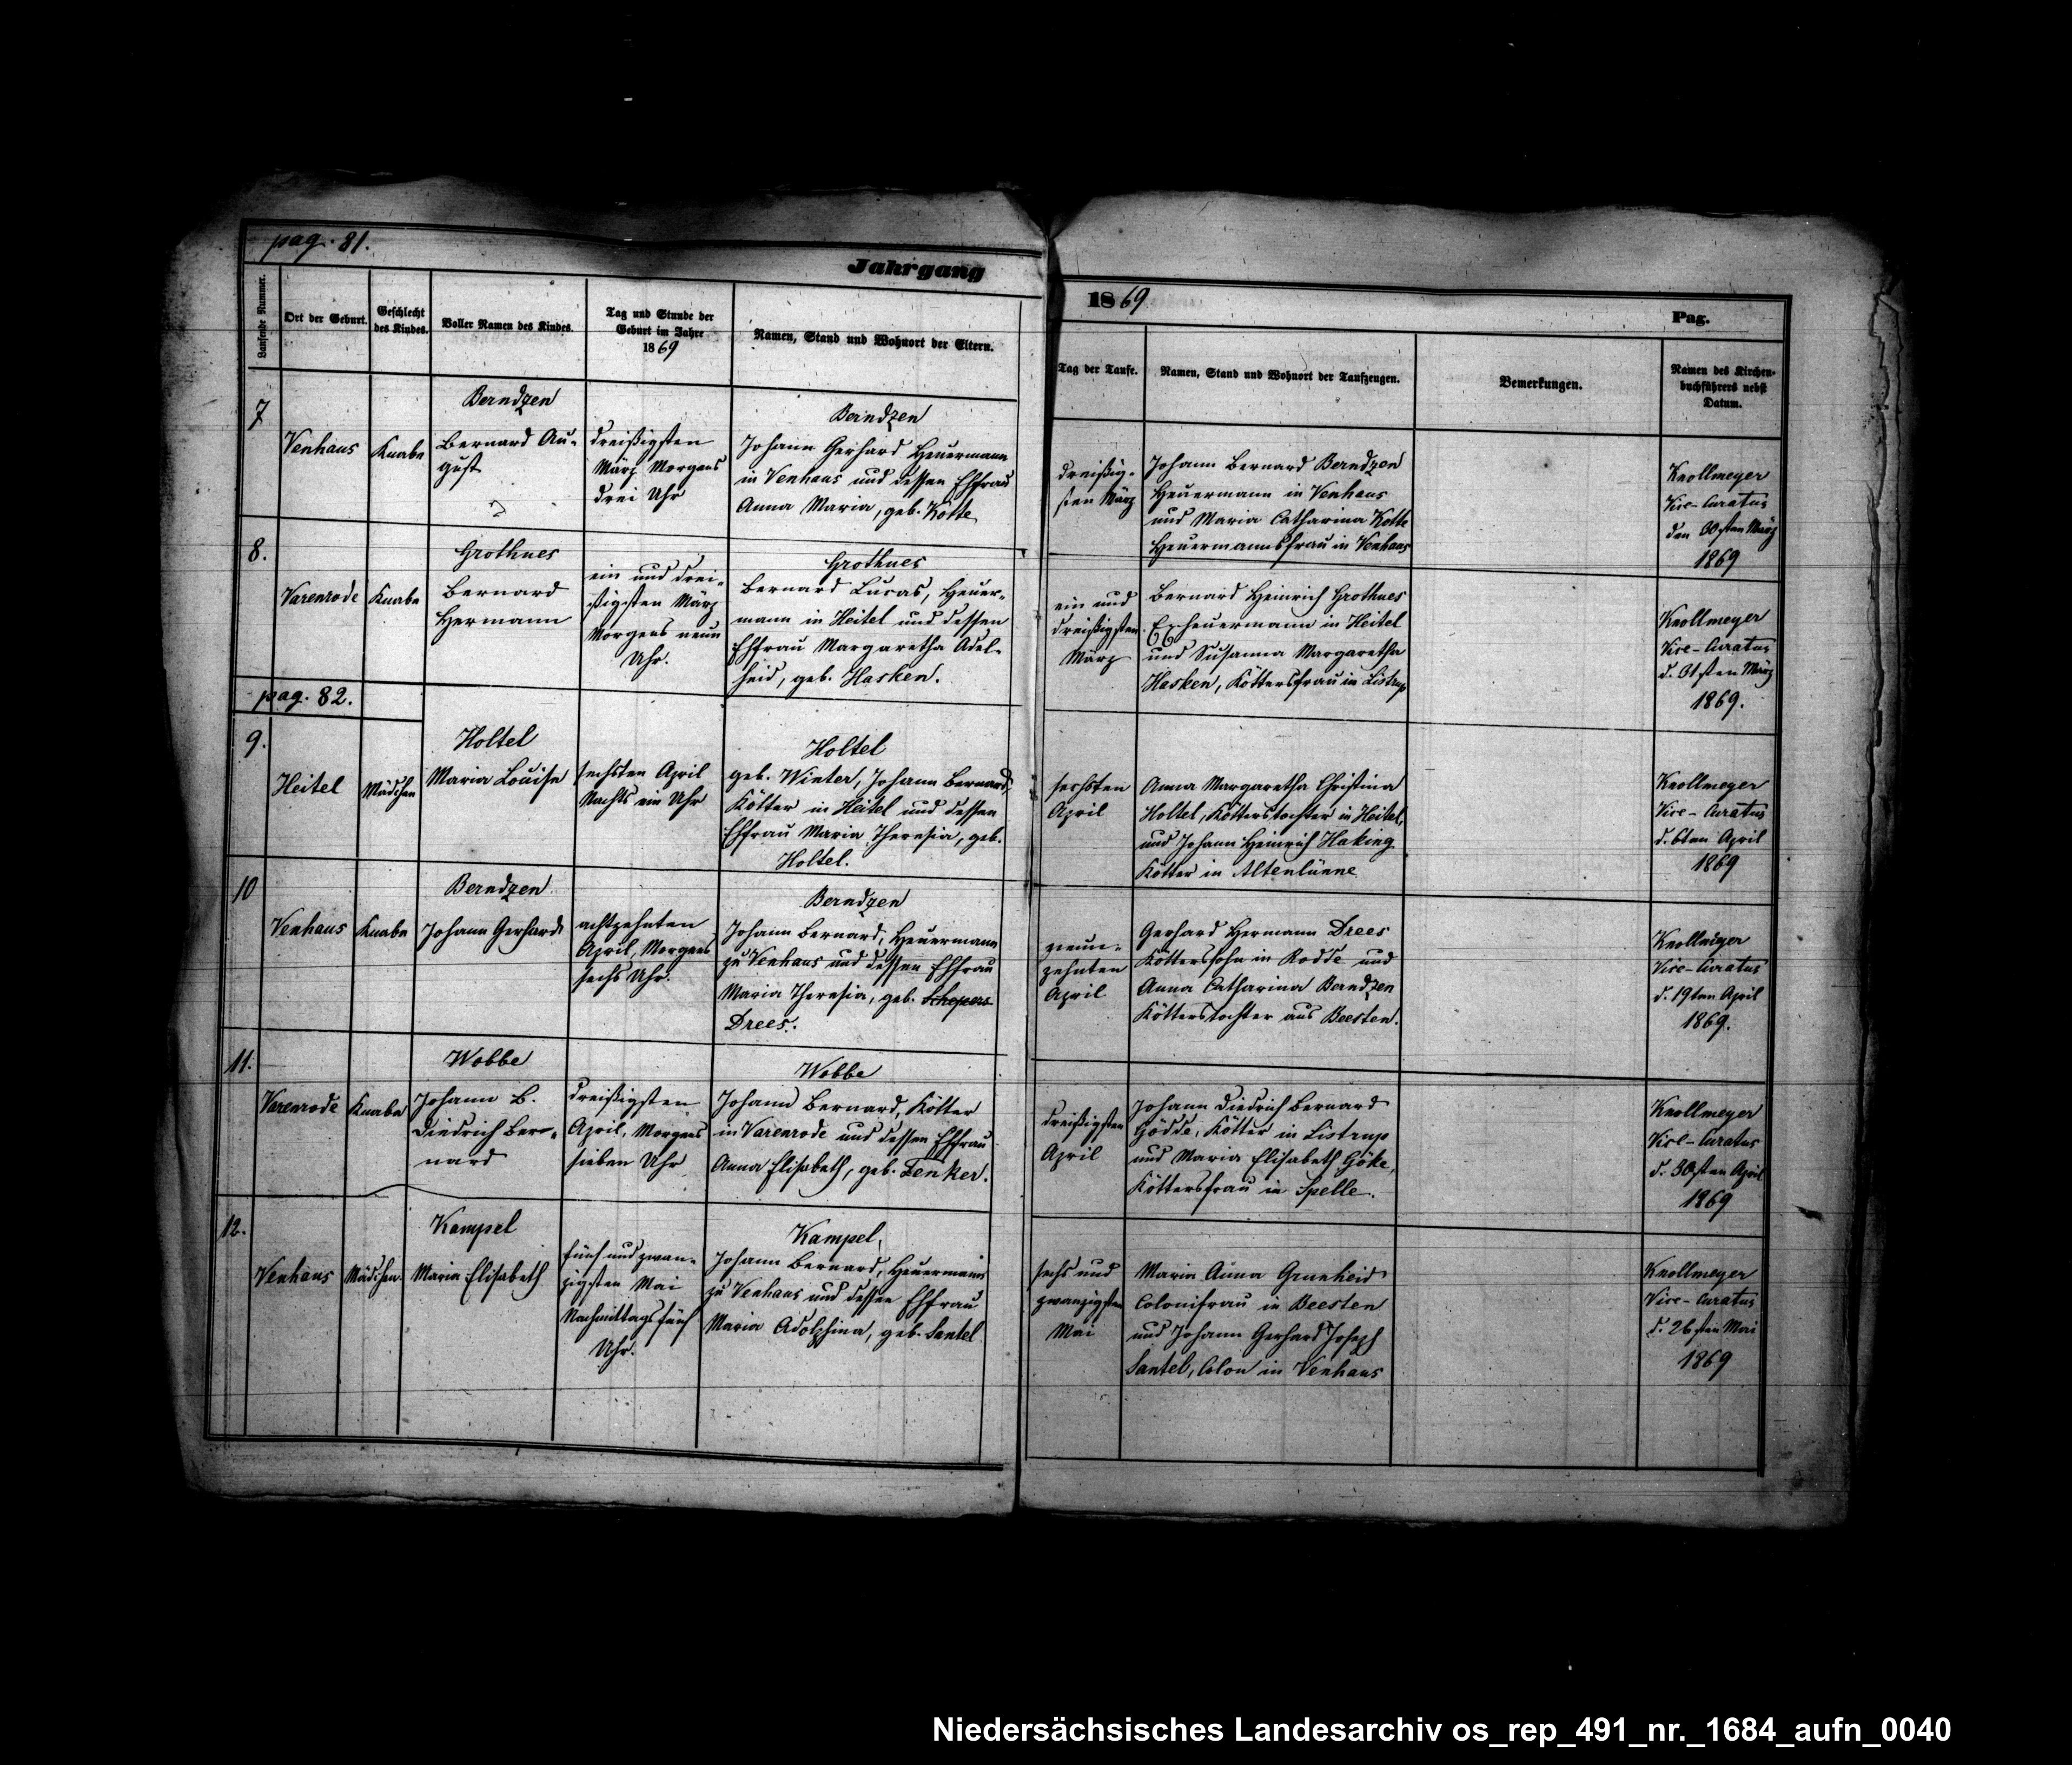 pag. 81.
Jahrgang
1869
Pag.
Laufende Nummer.
Ort der Geburt.
Geschlecht
des Kindes.
Voller Namen des Kindes.
Tag und Stunde der
Geburt im Jahre
1869
Namen, Stand und Wohnort der Eltern.
Tag der Taufe.
Namen, Stand und Wohnort der Taufzeugen.
Bemerkungen.
Namen des Kirchen-
buchführers nebst
Datum.
7
Venhaus
Knabe
Berndzen
Bernard Au-
gust
dreißigsten
März Morgens
drei Uhr
Berndzen
Johann Gerhard Heuermann
in Venhaus und dessen Ehfrau
Anna Maria, geb. Kötte
dreißig-
sten März
Johann Bernard Berndzen
Heuermann in Venhaus
und Maria Catharina Kotte
Heuermannsfrau in Venhaus
Knollmeyer
Vice-Curatus
den 30sten März
1869
8.
Varenrode
Knabe
Grothues
Bernard
Hermann
ein und drei-
ßigsten März
Morgens neun
Uhr.
Grothues
Bernard Lucas, Heuer-
mann in Heitel und dessen
Ehfrau Margaretha Adel-
heid, geb. Hasken.
ein und
dreißigsten
März
Bernard Heinrich Grothues
Exheuermann in Heitel
und Susanna Margaretha
Hasken, Köttersfrau in Listrup
Knollmeyer
Vice-Curatus
d. 31sten März
1869.
pag. 82.
9.
Heitel
Mädchen
Holtel
Maria Louise
sechsten April
Nachts ein Uhr
Holtel
geb. Winter, Johann Bernard,
Kötter in Heitel und dessen
Ehfrau Maria Theresia, geb.
Holtel.
sechsten
April
Anna Margaretha Christina
Holtel, Kötterstochter in Heitel,
und Johann Heinrich Haking
Kötter in Altenlünne
Knollmeyer
Vice-Curatus
d. 6ten April
1869
10
Venhaus
Knabe
Berndzen
Johann Gerhard
achtzehnten
April, Morgens
sechs Uhr.
Berndzen
Johann Bernard, Heuermann
zu Venhaus und dessen Ehfrau
Maria Theresia, geb. Schepers
Drees.
neun-
zehnten
April
Gerhard Hermann Drees
Kötterssohn in Rodde und
Anna Catharina Berndzen
Kötterstochter aus Beesten.
Knollmeyer
Vice-Curatus
d. 19ten April
1869.
11.
Varenrode
Knabe
Wobbe
Johann B.
Diedrich Ber-
nard
dreißigsten
April, Morgens
sieben Uhr
Wobbe
Johann Bernard, Kötter
in Varenrode und dessen Ehfrau
Anna Elisabeth, geb. Fenker.
dreißigsten
April
Johann Diedrich Bernard
Gödde, Kötter in Listrup
und Maria Elisabeth Göke,
Köttersfrau in Spelle.
Knollmeyer
Vice-Curatus
d. 30sten April
1869
12.
Venhaus
Mädchen
Kampel
Maria Elisabeth
fünf und zwan-
zigsten Mai
Nachmittags fünf
Uhr.
Kampel,
Johann Bernard, Heuermann
zu Venhaus und dessen Ehfrau
Maria Adolphina, geb. Santel
sechs und
zwanzigsten
Mai
Maria Anna Grunheid
Colonifrau in Beesten
und Johann Gerhard Joseph
Santel, Colon in Venhaus
Knollmeyer
Vice-Curatus
d. 26sten Mai
1869
Niedersächsisches Landesarchiv os_rep_491_nr._1684_aufn_0040